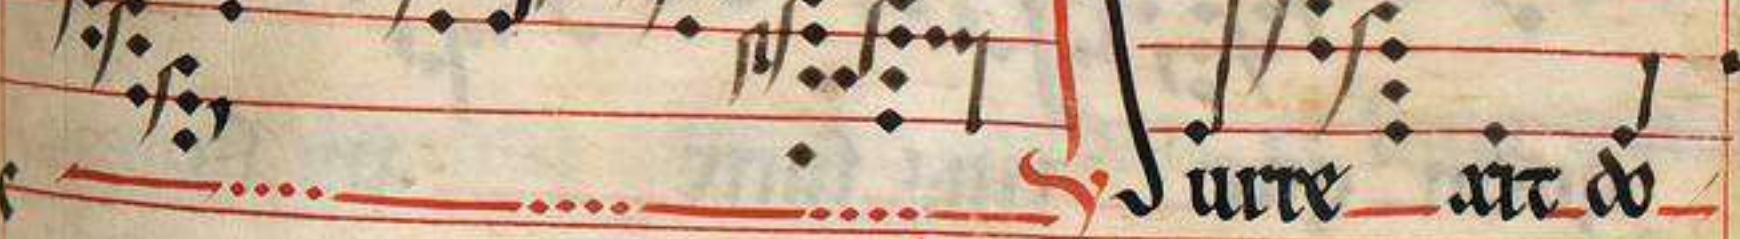 ℣ Surre xit do